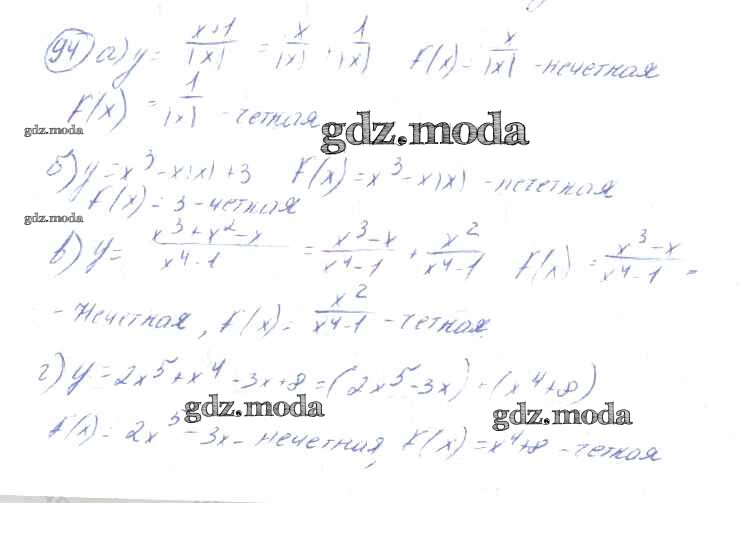 94) а) y = (x+1)/|x| = x/|x| + 1/|x|   f(x) = x/|x| - нечетная
f(x) = 1/|x| - четная
gdz.moda
gdz.moda
б) y = x³ - x|x| + 3   f(x) = x³ - x|x| - нечетная
f(x) = 3 - четная
gdz.moda
в) y = (x³+x²-x)/(x⁴-1) = (x³-x)/(x⁴-1) + x²/(x⁴-1)   f(x) = (x³-x)/(x⁴-1) -
- нечетная, f(x) = x²/(x⁴-1) - четная
г) y = 2x⁵ + x⁴ - 3x + 8 = (2x⁵ - 3x) + (x⁴ + 8)
gdz.moda
gdz.moda
f(x) = 2x⁵ - 3x - нечетная, f(x) = x⁴ + 8 - четная